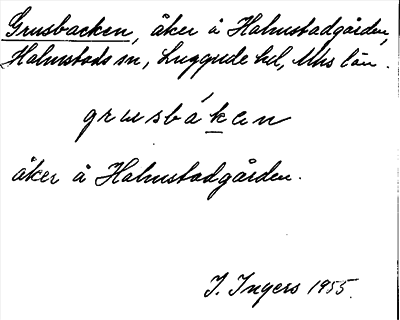 Grusbacken, åker å Halmstadgården,
Halmstads sn, Luggude hd, Mhs län.
grusbáken
åker å Halmstadgården.
I. Ingers 1955.